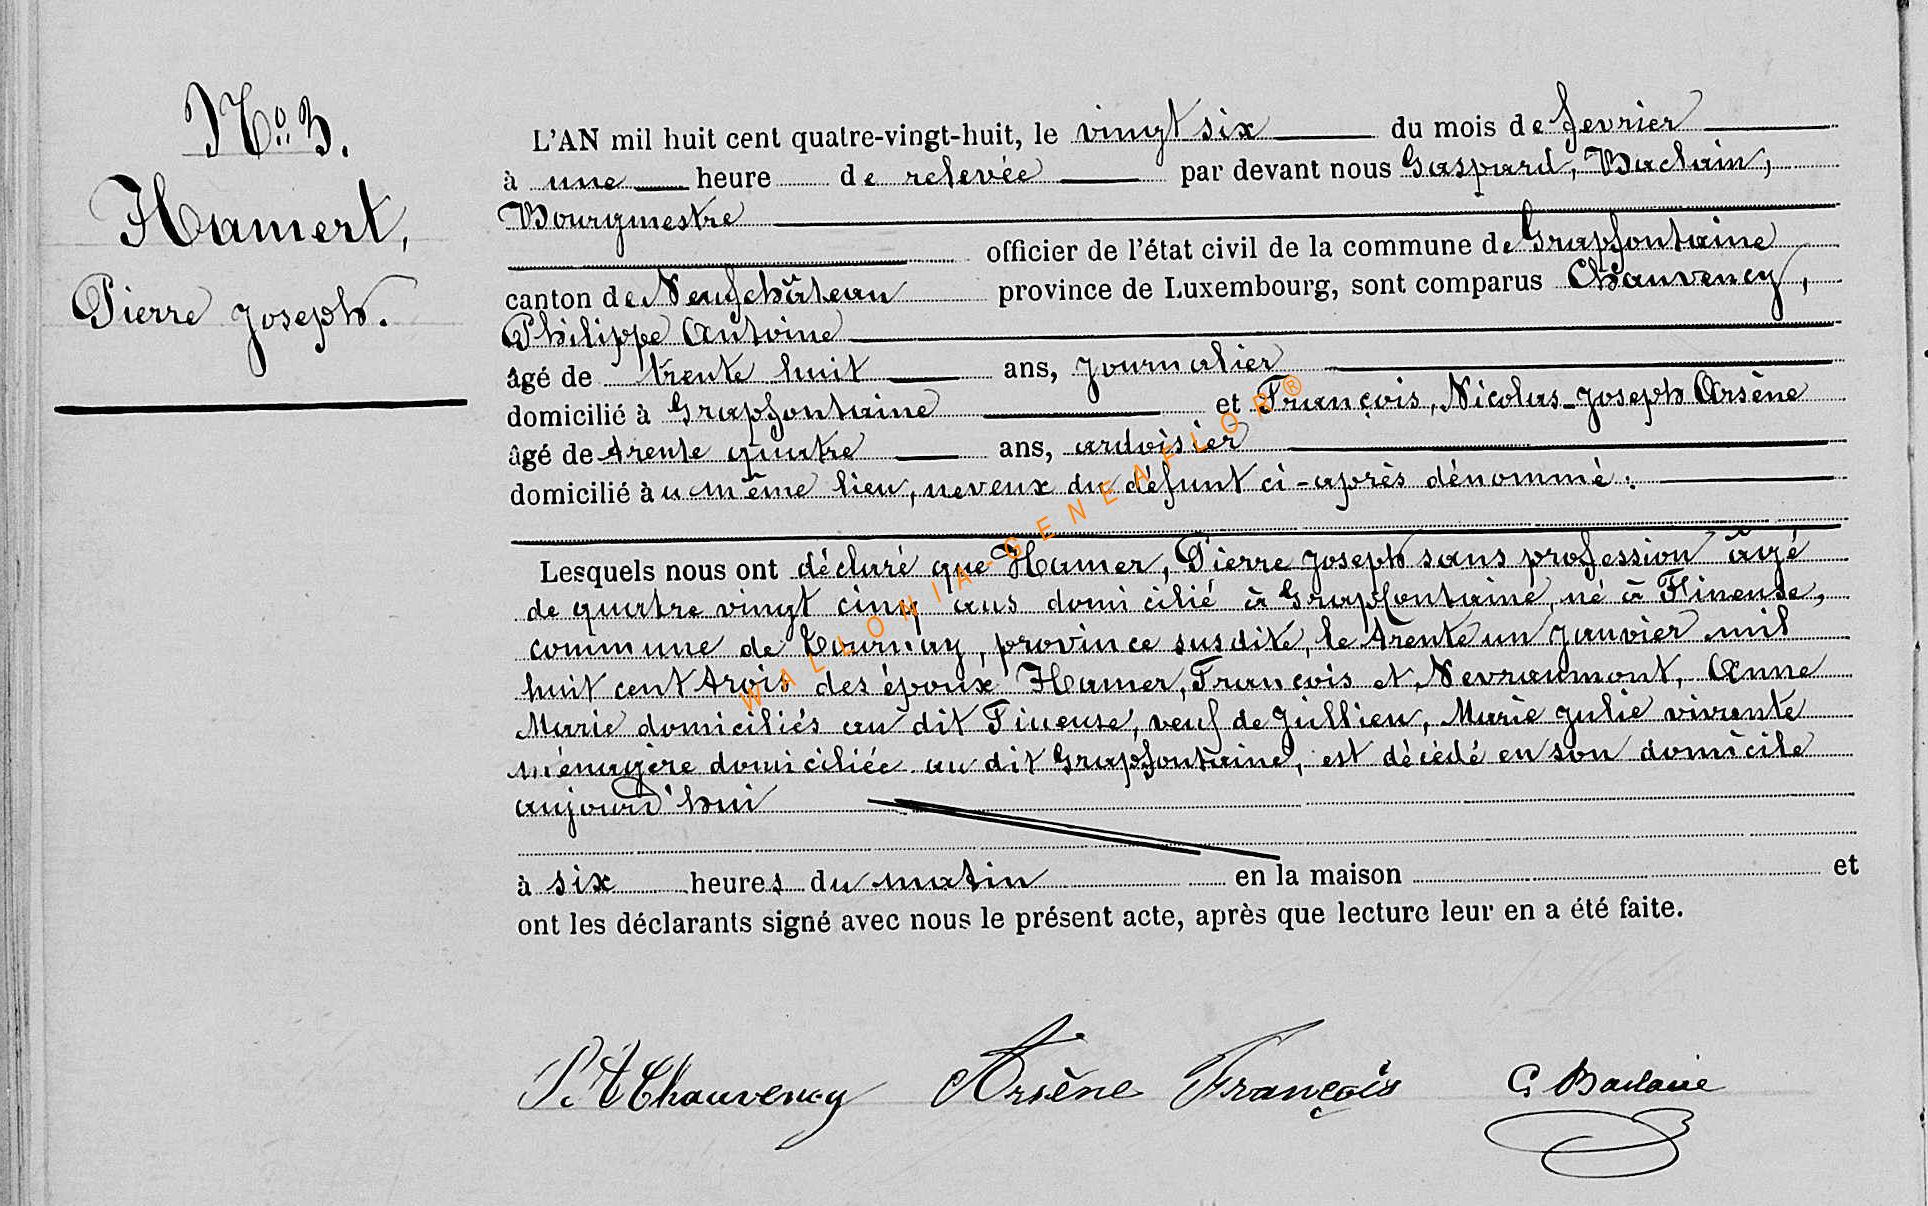 No. 3.
Hamert,
Pierre Joseph.
L'AN mil huit cent quatre-vingt-huit, le vingt six du mois de fevrier
à une heure de relevée par devant nous Gaspard, Baclain,
Bourgmestre
officier de l'état civil de la commune de Grapfontaine
canton de Neufchâteau province de Luxembourg, sont comparus Chauvency,
Philippe Antoine
âgé de trente huit ans, journalier
domicilié à Grapfontaine et François, Nicolas-Joseph Arsène
âgé de trente quatre ans, ardoisier
domicilié àu même lieu, neveux du défunt ci-après dénommé:
Lesquels nous ont déclaré que Hamer, Pierre Joseph sans profession âgé
de quatre vingt cinq ans domicilié à Grapfontaine, né à Fineuse,
commune de Tournay, province susdite, le trente un janvier mil
huit cent trois des époux Hamer, François et Nevraumont, Anne
Marie domiciliés au dit Fineuse, veuf de Jullien, Marie Julie vivante
ménagère domiciliée au dit Grapfontaine, est décédé en son domicile
aujourd'hui
à six heures du matin en la maison et
ont les déclarants signé avec nous le présent acte, après que lecture leur en a été faite.
P. A Chauvency Arsène François G Baclain
WALLONIA-GENEAFLOR®